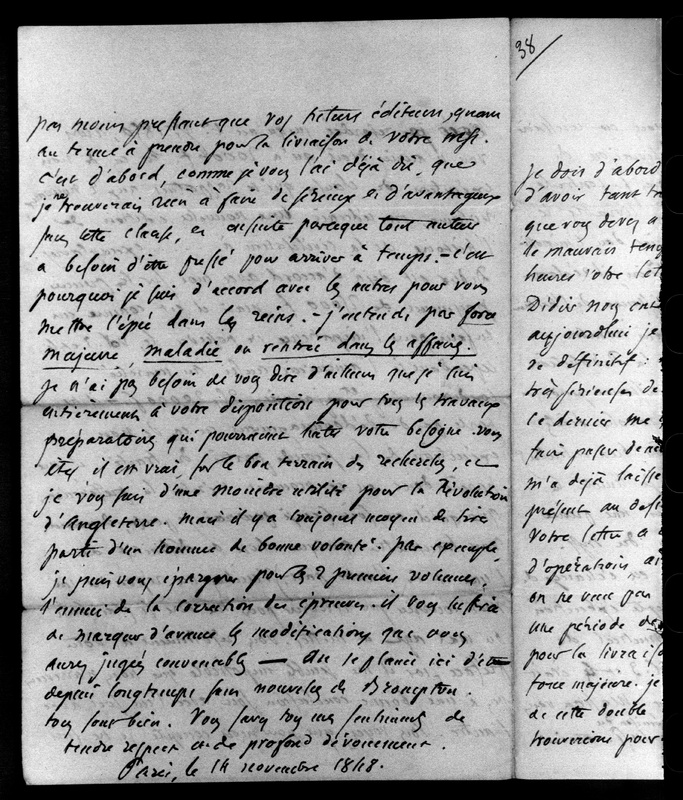 pas moins pressant que vos futurs éditeurs, quant
au terme à prendre pour la livraison de votre msс.
c'est d'abord, comme je vous l'ai déjà dit, que
je ne trouverais rien à faire de sérieux et d'avantageux
sans cette clause, et ensuite parceque tout auteur
a besoin d'être pressé pour arriver à temps. - c'est
pourquoi je suis d'accord avec les autres pour vous
mettre l'épée dans les reins. - j'entends par force
majeure, maladie ou rentrée dans les affaires.
je n'ai pas besoin de vous dire d'ailleurs que je suis
entièrement à votre disposition pour tous les travaux
préparatoires qui pourraient hâter votre besogne. vous
êtes, il est vrai, sur le bon terrain des recherches, et
je vous suis d'une moindre utilité pour la Révolution
d'Angleterre. mais il y a toujours moyen de tirer
parti d'un homme de bonne volonté. par exemple,
je puis vous épargner pour les 2 premiers volumes,
l'ennui de la correction des épreuves. il vous suffira
de marquer d'avance les modifications que vous
aurez jugées convenables — On se plaint ici d'être
depuis longtemps sans nouvelles de Brompton.
tous sont bien. Vous savez tous mes sentiments de
tendre respect et de profond dévouement.
Paris, le 14 novembre 1848.
38
je dois d'abord
d'avoir tant
que vous devez
le mauvais temps
heures votre
Didier
aujourdhui je
de définitif :
très sérieuses de
ce dernier me
faire passer
m'a déjà laissé
présent au
Votre lettre a
d'opérations
on ne veut pas
une période de
pour la livraiso
force majeure. je
de cette double
trouverions pour